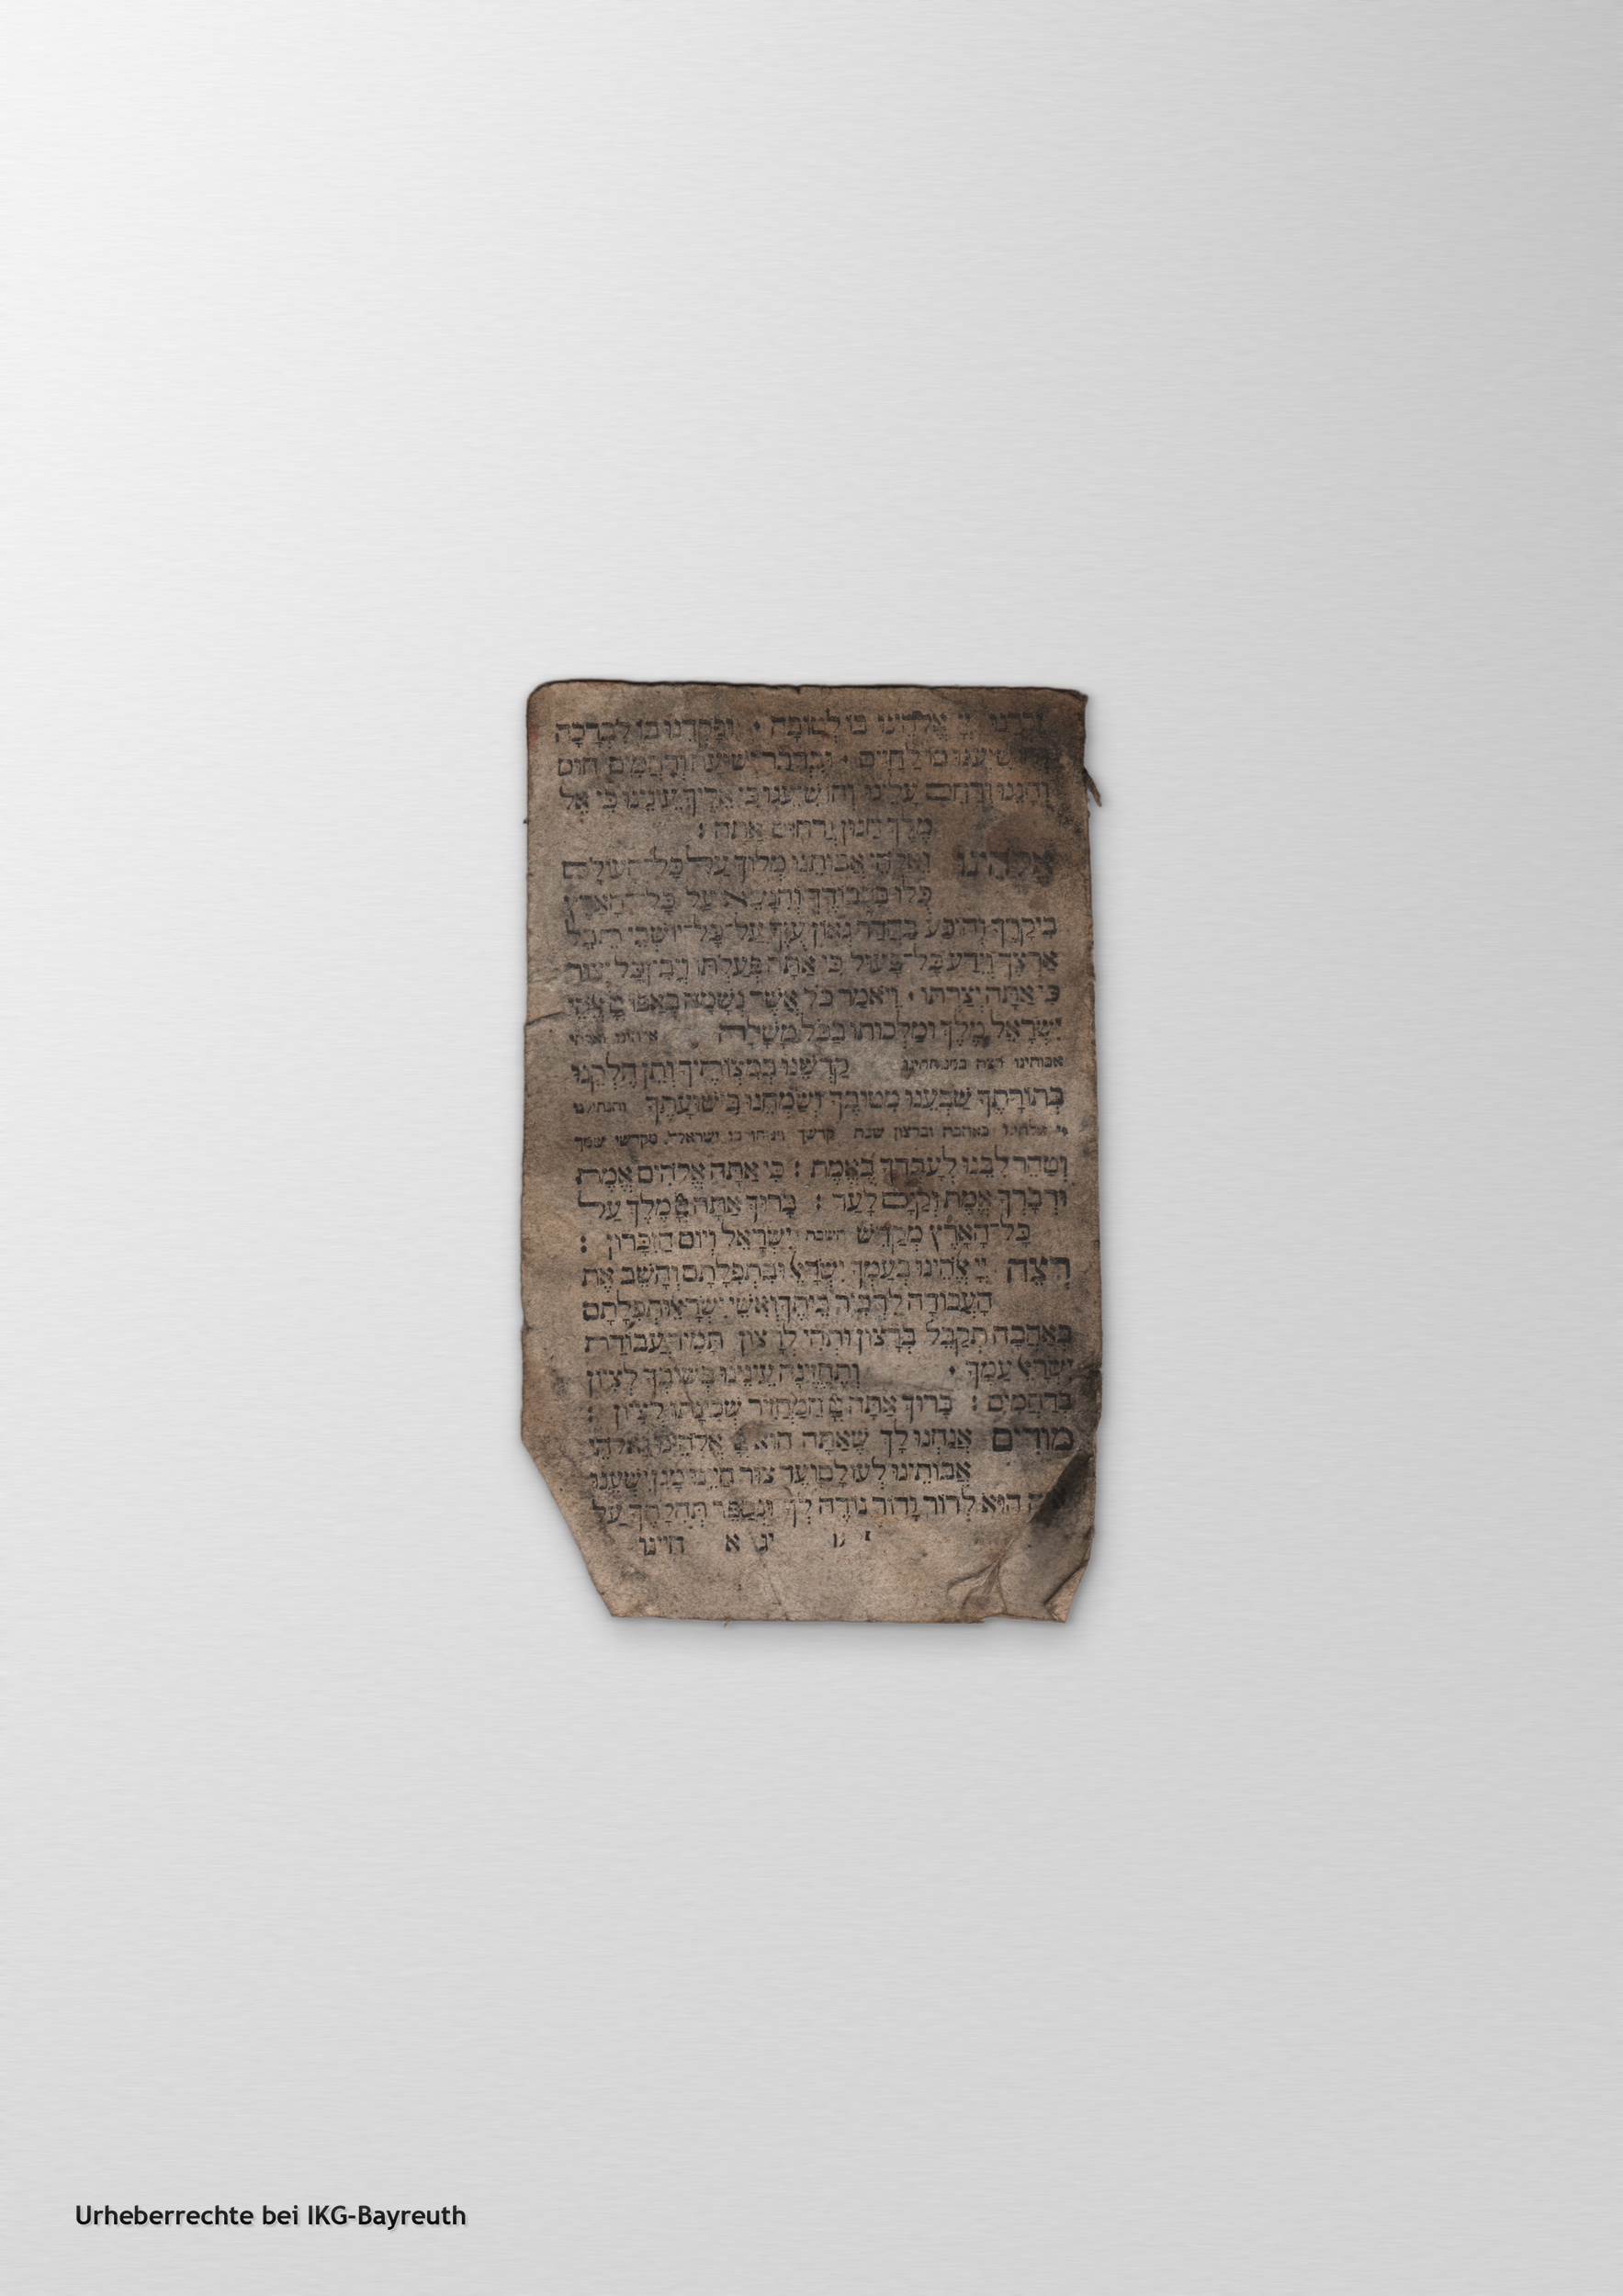 זכרנו יי אלהינו בו לטובה · ופקדנו בו לברכה
והושיענו בו לחיים · ובדבר ישועה ורחמים חוס
וחננו ורחם עלינו והושיענו כי אליך עינינו כי אל
מלך חנון ורחום אתה :
אלהינו ואלהי אבותינו מלוך על כל־העולם
כלו בכבודך והנשא על כל־הארץ
ביקרך והופע בהדר גאון עזך על־כל־יושבי תבל
ארצך וידע כל־פעול כי אתה פעלתו ויבין כל יצור
כי אתה יצרתו · ויאמר כל אשר נשמה באפו יי אלהי
ישראל מלך ומלכותו בכל משלה אלהינו ואלהי
אבותינו רצה במנוחתינו קדשנו במצותיך ותן חלקנו
בתורתך שבענו מטובך ושמחנו בישועתך והנחילנו
יי אלהינו באהבה וברצון שבת קדשך וינוחו בו ישראל מקדשי שמך
וטהר לבנו לעבדך באמת : כי אתה אלהים אמת
ודברך אמת וקים לעד : ברוך אתה יי מלך על
כל־הארץ מקדש השבת ישראל ויום הזכרון :
רצה יי אלהינו בעמך ישראל ובתפלתם והשב את
העבודה לדביר ביתך ואשי ישראל ותפלתם
באהבה תקבל ברצון ותהי לרצון תמיד עבודת
ישראל עמך · ותחזינה עינינו בשובך לציון
ברחמים : ברוך אתה יי המחזיר שכינתו לציון :
מודים אנחנו לך שאתה הוא יי אלהינו ואלהי
אבותינו לעולם ועד צור חיינו מגן ישענו
הוא לדור ודור נודה לך ונספר תהלתך על
חיינו
Urheberrechte bei IKG-Bayreuth